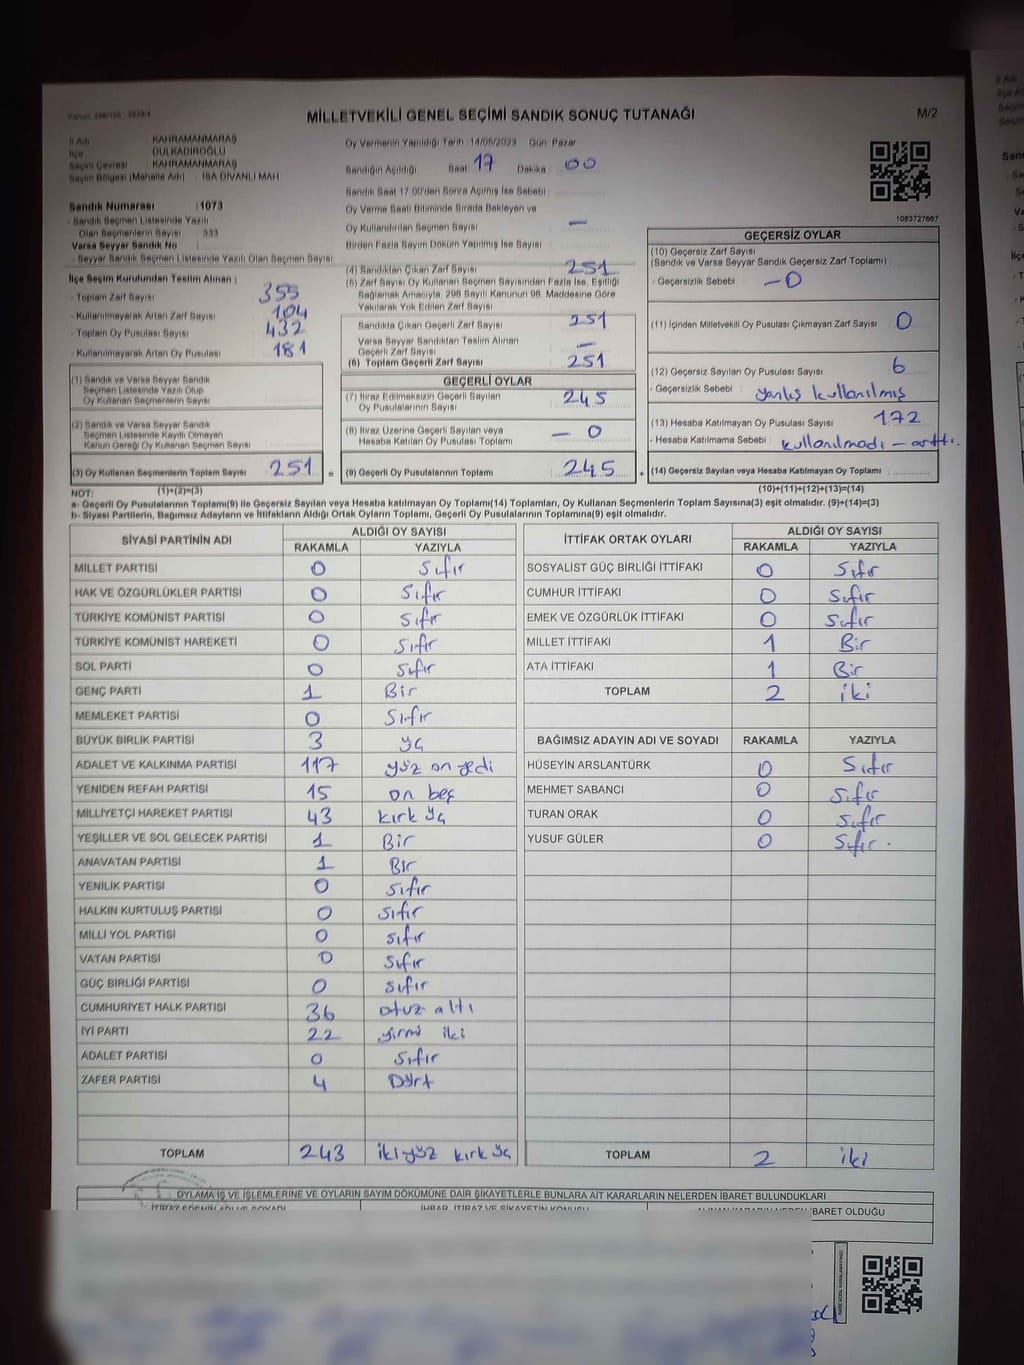 MİLLETVEKİLİ GENEL SEÇİMİ SANDIK SONUÇ TUTANAĞI
M/2
İl Adı KAHRAMANMARAŞ
İlçe DULKADİROĞLU
Seçim Çevresi KAHRAMANMARAŞ
Seçim Bölgesi (Mahalle Adı) İSA DİVANLI MAH
Sandık Numarası :1073
- Sandık Seçmen Listesinde Yazılı
Olan Seçmenlerin Sayısı : 333
Varsa Seyyar Sandık No
- Seyyar Sandık Seçmen Listesinde Yazılı Olan Seçmen Sayısı
Oy Vermenin Yapıldığı Tarih : 14/05/2023 Gün: Pazar
Sandığın Açıldığı Saat 17 Dakika : 00
Sandık Saat 17.00'den Sonra Açılmış İse Sebebi
Oy Verme Saati Bitiminde Sırada Bekleyen ve
Oy Kullandırılan Seçmen Sayısı —
Birden Fazla Sayım Döküm Yapılmış İse Sayısı
1083727667
İlçe Seçim Kurulundan Teslim Alınan ;
- Toplam Zarf Sayısı 355
- Kullanılmayarak Artan Zarf Sayısı 104
- Toplam Oy Pusulası Sayısı 432
- Kullanılmayarak Artan Oy Pusulası 181
(1) Sandık ve Varsa Seyyar Sandık
Seçmen Listesinde Yazılı Olup
Oy Kullanan Seçmenlerin Sayısı
(2) Sandık ve Varsa Seyyar Sandık
Seçmen Listesinde Kayıtlı Olmayan
Kanun Gereği Oy Kullanan Seçmen Sayısı
(3) Oy Kullanan Seçmenlerin Toplam Sayısı 251 =
(1)+(2)=(3)
(4) Sandıktan Çıkan Zarf Sayısı 251
(5) Zarf Sayısı Oy Kullanan Seçmen Sayısından Fazla İse, Eşitliği
Sağlamak Amacıyla, 298 Sayılı Kanunun 98. Maddesine Göre
Yakılarak Yok Edilen Zarf Sayısı
Sandıkta Çıkan Geçerli Zarf Sayısı 251
Varsa Seyyar Sandıktan Teslim Alınan
Geçerli Zarf Sayısı —
(6) Toplam Geçerli Zarf Sayısı 251
GEÇERLİ OYLAR
(7) İtiraz Edilmeksizin Geçerli Sayılan
Oy Pusulalarının Sayısı 245
(8) İtiraz Üzerine Geçerli Sayılan veya
Hesaba Katılan Oy Pusulası Toplamı — 0
(9) Geçerli Oy Pusulalarının Toplamı 245 +
GEÇERSİZ OYLAR
(10) Geçersiz Zarf Sayısı
(Sandık ve Varsa Seyyar Sandık Geçersiz Zarf Toplamı)
- Geçersizlik Sebebi : — 0
(11) İçinden Milletvekili Oy Pusulası Çıkmayan Zarf Sayısı 0
(12) Geçersiz Sayılan Oy Pusulası Sayısı 6
- Geçersizlik Sebebi : yanlış kullanılmış
(13) Hesaba Katılmayan Oy Pusulası Sayısı 172
- Hesaba Katılmama Sebebi kullanılmadı — arttı.
(14) Geçersiz Sayılan veya Hesaba Katılmayan Oy Toplamı :
(10)+(11)+(12)+(13)=(14)
NOT:
a- Geçerli Oy Pusulaları Toplamı(9) ile Geçersiz Sayılan veya Hesaba katılmayan Oy Toplamı(14) Toplamları, Oy Kullanan Seçmenlerin Toplam Sayısına(3) eşit olmalıdır. (9)+(14)=(3)
b- Siyasi Partilerin, Bağımsız Adayların ve İttifakların Aldığı Ortak Oyların Toplamı, Geçerli Oy Pusulalarının Toplamına(9) eşit olmalıdır.
SİYASİ PARTİNİN ADI ALDIĞI OY SAYISI
RAKAMLA YAZIYLA
MİLLET PARTİSİ 0 Sıfır
HAK VE ÖZGÜRLÜKLER PARTİSİ 0 Sıfır
TÜRKİYE KOMÜNİST PARTİSİ 0 Sıfır
TÜRKİYE KOMÜNİST HAREKETİ 0 Sıfır
SOL PARTİ 0 Sıfır
GENÇ PARTİ 1 Bir
MEMLEKET PARTİSİ 0 Sıfır
BÜYÜK BİRLİK PARTİSİ 3 üç
ADALET VE KALKINMA PARTİSİ 117 yüz on yedi
YENİDEN REFAH PARTİSİ 15 on beş
MİLLİYETÇİ HAREKET PARTİSİ 43 kırk üç
YEŞİLLER VE SOL GELECEK PARTİSİ 1 Bir
ANAVATAN PARTİSİ 1 Bir
YENİLİK PARTİSİ 0 sıfır
HALKIN KURTULUŞ PARTİSİ 0 sıfır
MİLLİ YOL PARTİSİ 0 sıfır
VATAN PARTİSİ 0 Sıfır
GÜÇ BİRLİĞİ PARTİSİ 0 sıfır
CUMHURİYET HALK PARTİSİ 36 otuz altı
İYİ PARTİ 22 yirmi iki
ADALET PARTİSİ 0 Sıfır
ZAFER PARTİSİ 4 Dört
TOPLAM 243 ikiyüz kırk üç
İTTİFAK ORTAK OYLARI ALDIĞI OY SAYISI
RAKAMLA YAZIYLA
SOSYALİST GÜÇ BİRLİĞİ İTTİFAKI 0 Sıfır
CUMHUR İTTİFAKI 0 Sıfır
EMEK VE ÖZGÜRLÜK İTTİFAKI 0 Sıfır
MİLLET İTTİFAKI 1 Bir
ATA İTTİFAKI 1 Bir
TOPLAM 2 iki
BAĞIMSIZ ADAYIN ADI VE SOYADI RAKAMLA YAZIYLA
HÜSEYİN ARSLANTÜRK 0 Sıfır
MEHMET SABANCI 0 Sıfır
TURAN ORAK 0 Sıfır
YUSUF GÜLER 0 Sıfır.
TOPLAM 2 iki
OYLAMA İŞ VE İŞLEMLERİNE VE OYLARIN SAYIM DÖKÜMÜNE DAİR ŞİKAYETLERLE BUNLARA AİT KARARLARIN NELERDEN İBARET BULUNDUKLARI
İBARET OLDUĞU